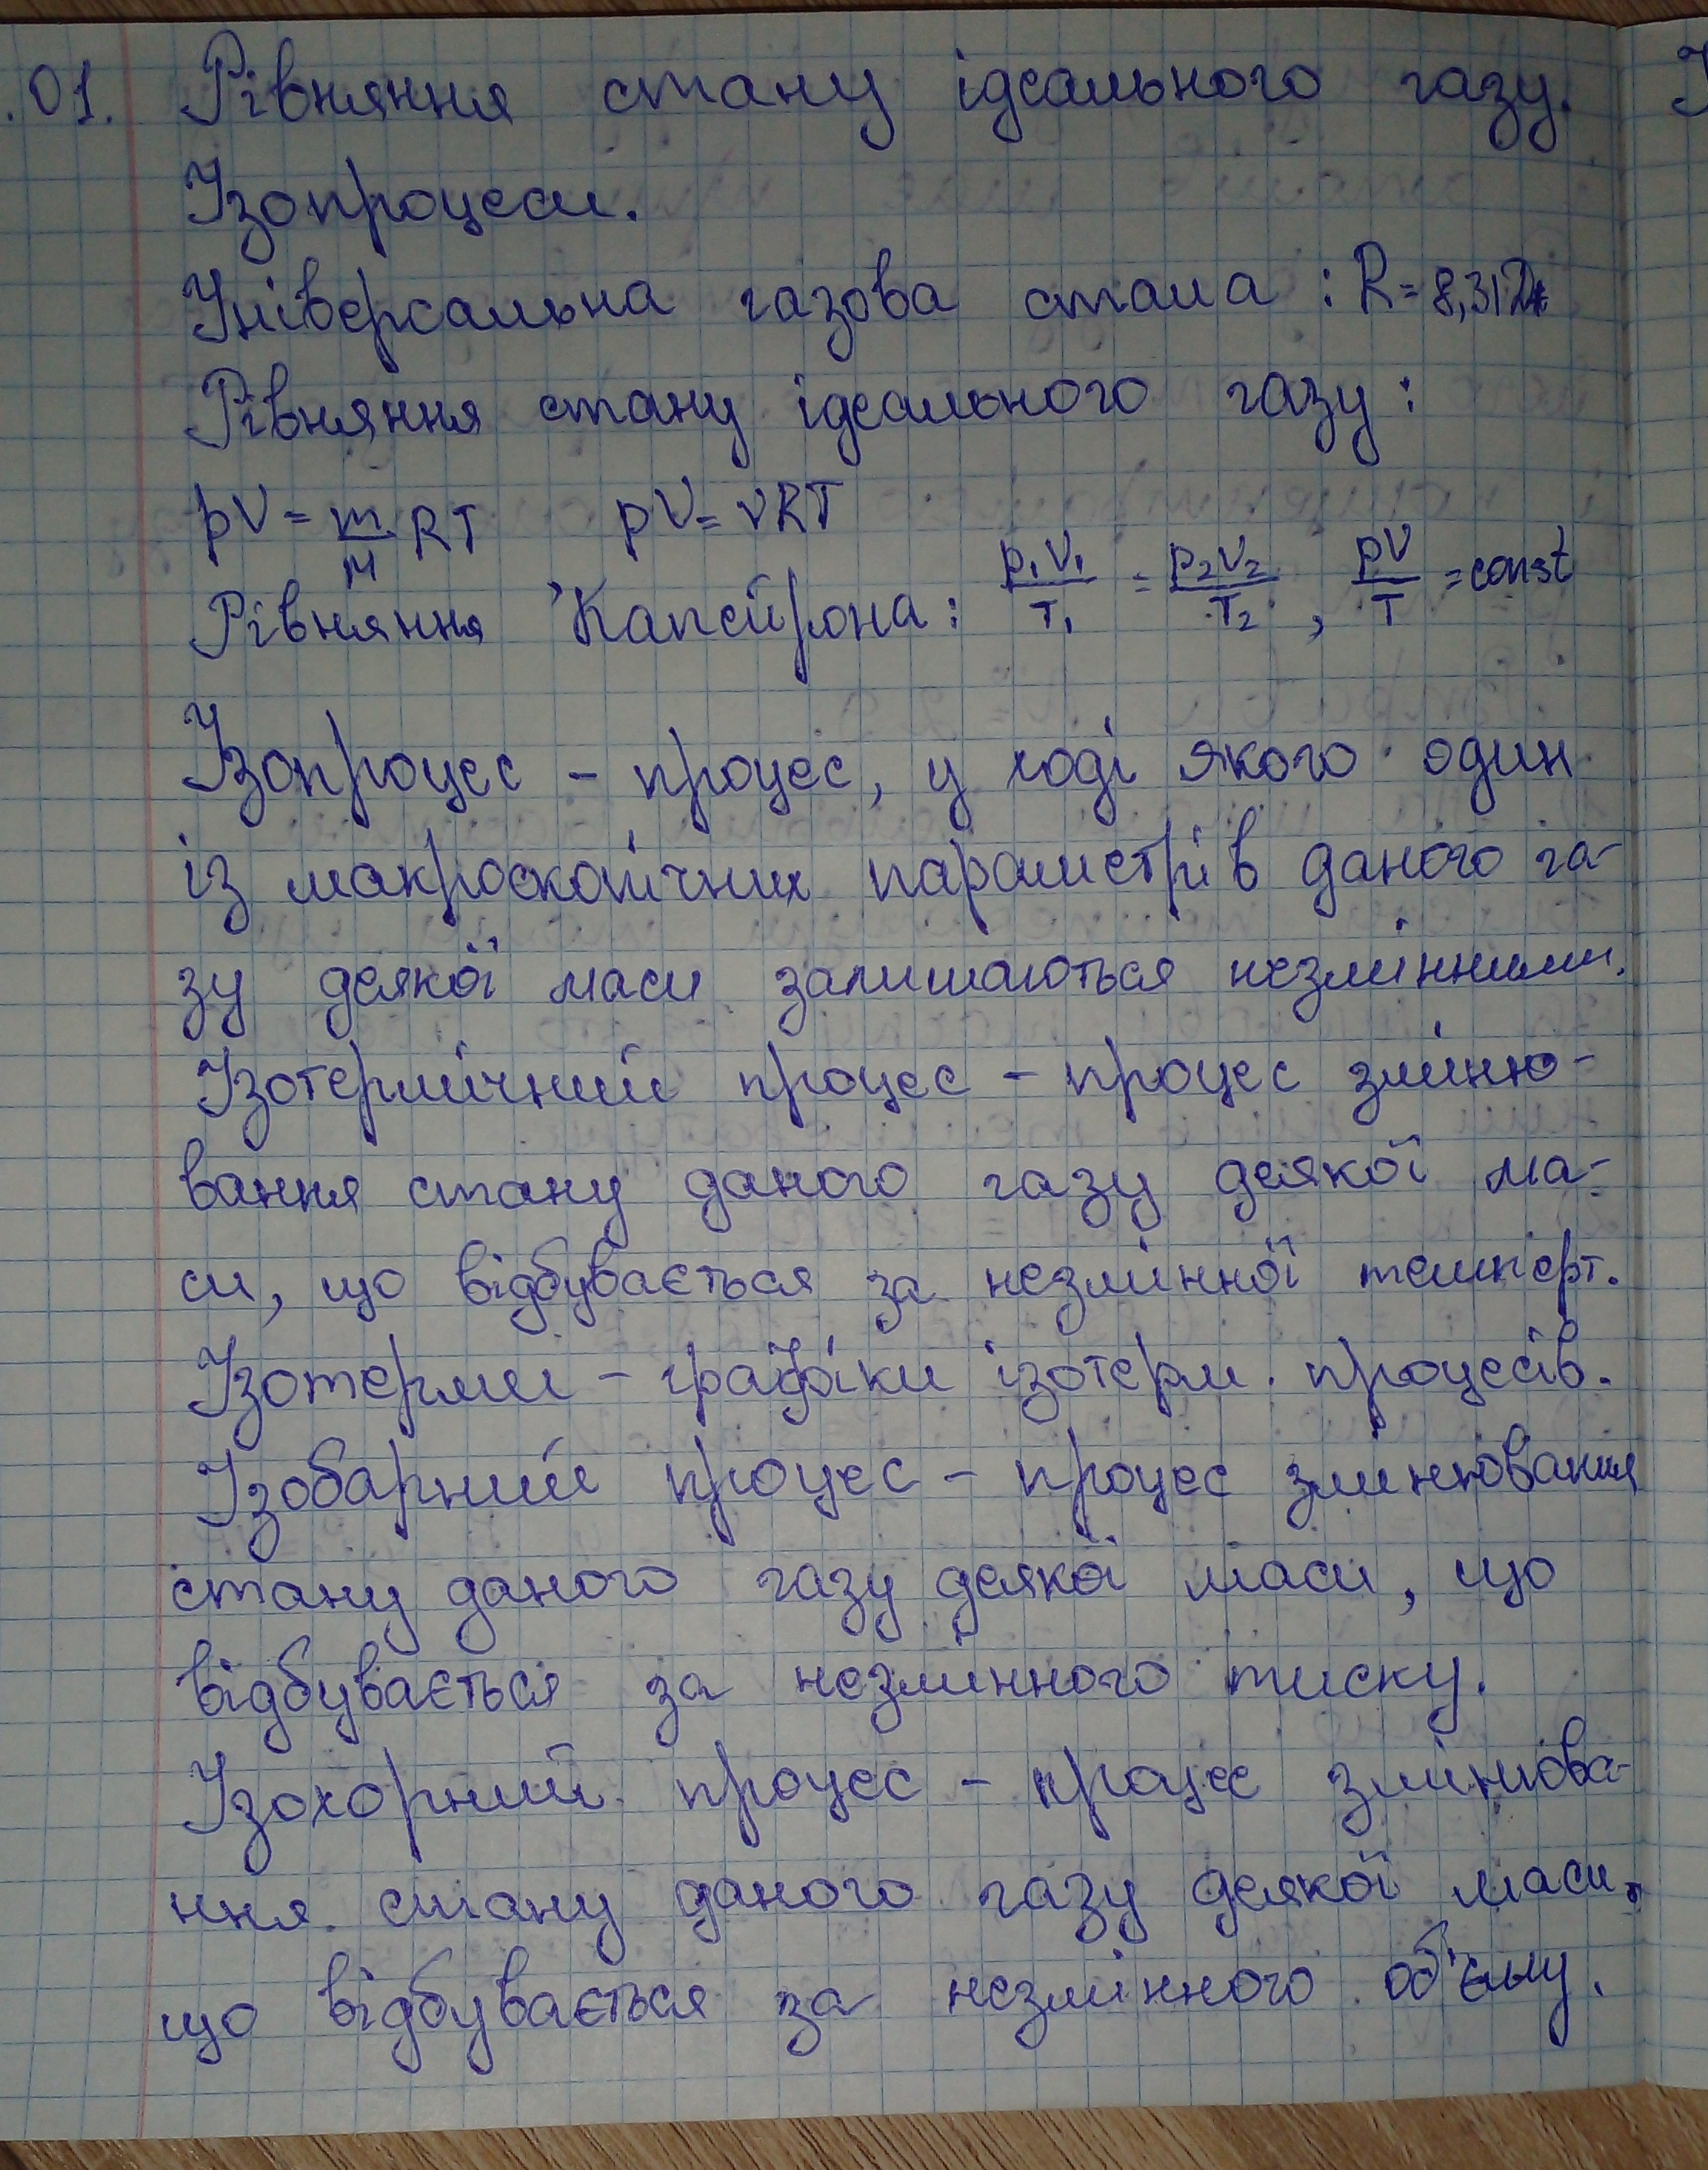 .01. Рівняння стану ідеального газу.
Ізопроцеси.
Універсальна газова стала : R = 8,31 Дж
Рівняння стану ідеального газу :
pV = m/M RT pV = νRT
Рівняння Капейрона : p₁V₁/T₁ = p₂V₂/T₂ , pV/T = const
Ізопроцес – процес, у ході якого один
із макроскопічних параметрів даного га-
зу деякої маси залишаються незмінними.
Ізотермічний процес – процес зміню-
вання стану даного газу деякої ма-
си, що відбувається за незмінної темперт.
Ізотерми – графіки ізотерм. процесів.
Ізобарний процес – процес змінювання
стану даного газу деякої маси, що
відбувається за незмінного тиску.
Ізохорний процес – процес змінюва-
ння стану даного газу деякої маси,
що відбувається за незмінного об'єму.